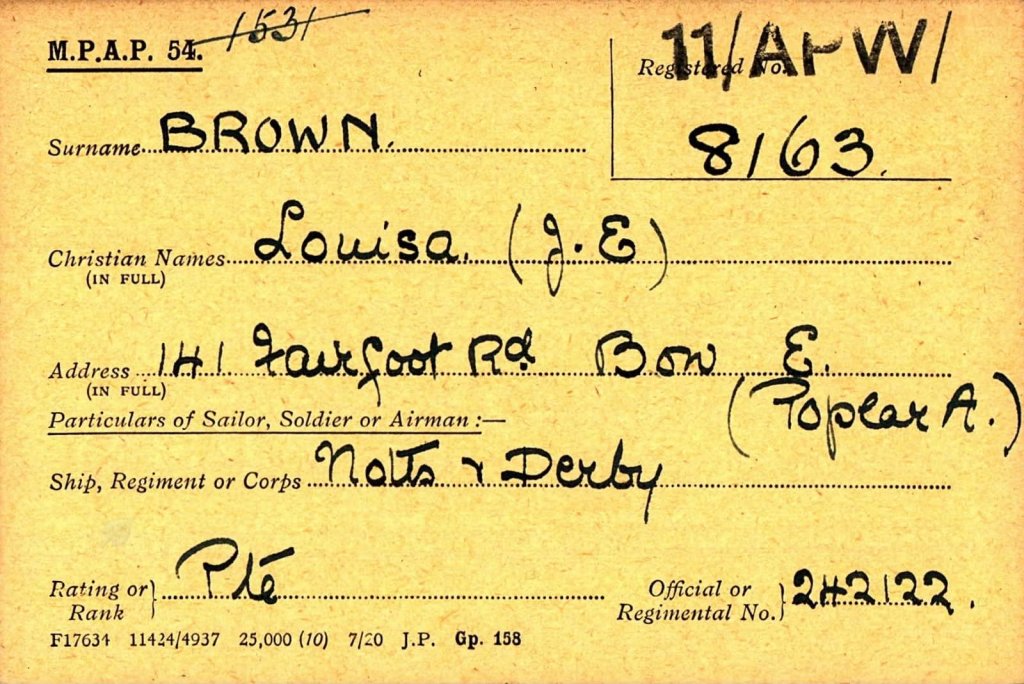 M.P.A.P. 54. 1531
Registered No. 11/APW/
8163.
Surname BROWN.
Christian Names Louisa. (J. E)
(IN FULL)
Address 141 Fairfoot Rd Bow E.
(IN FULL)
(Poplar A.)
Particulars of Sailor, Soldier or Airman :—
Ship, Regiment or Corps Notts & Derby
Rating or Rank } Pte
Official or Regimental No. } 242122.
F17634 11424/4937 25,000 (10) 7/20 J.P. Gp. 158